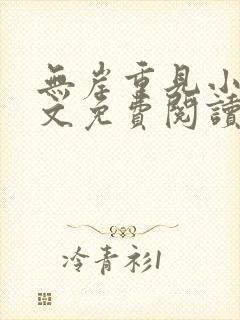 無岸重見小
文免費閱讀
冷青衫1